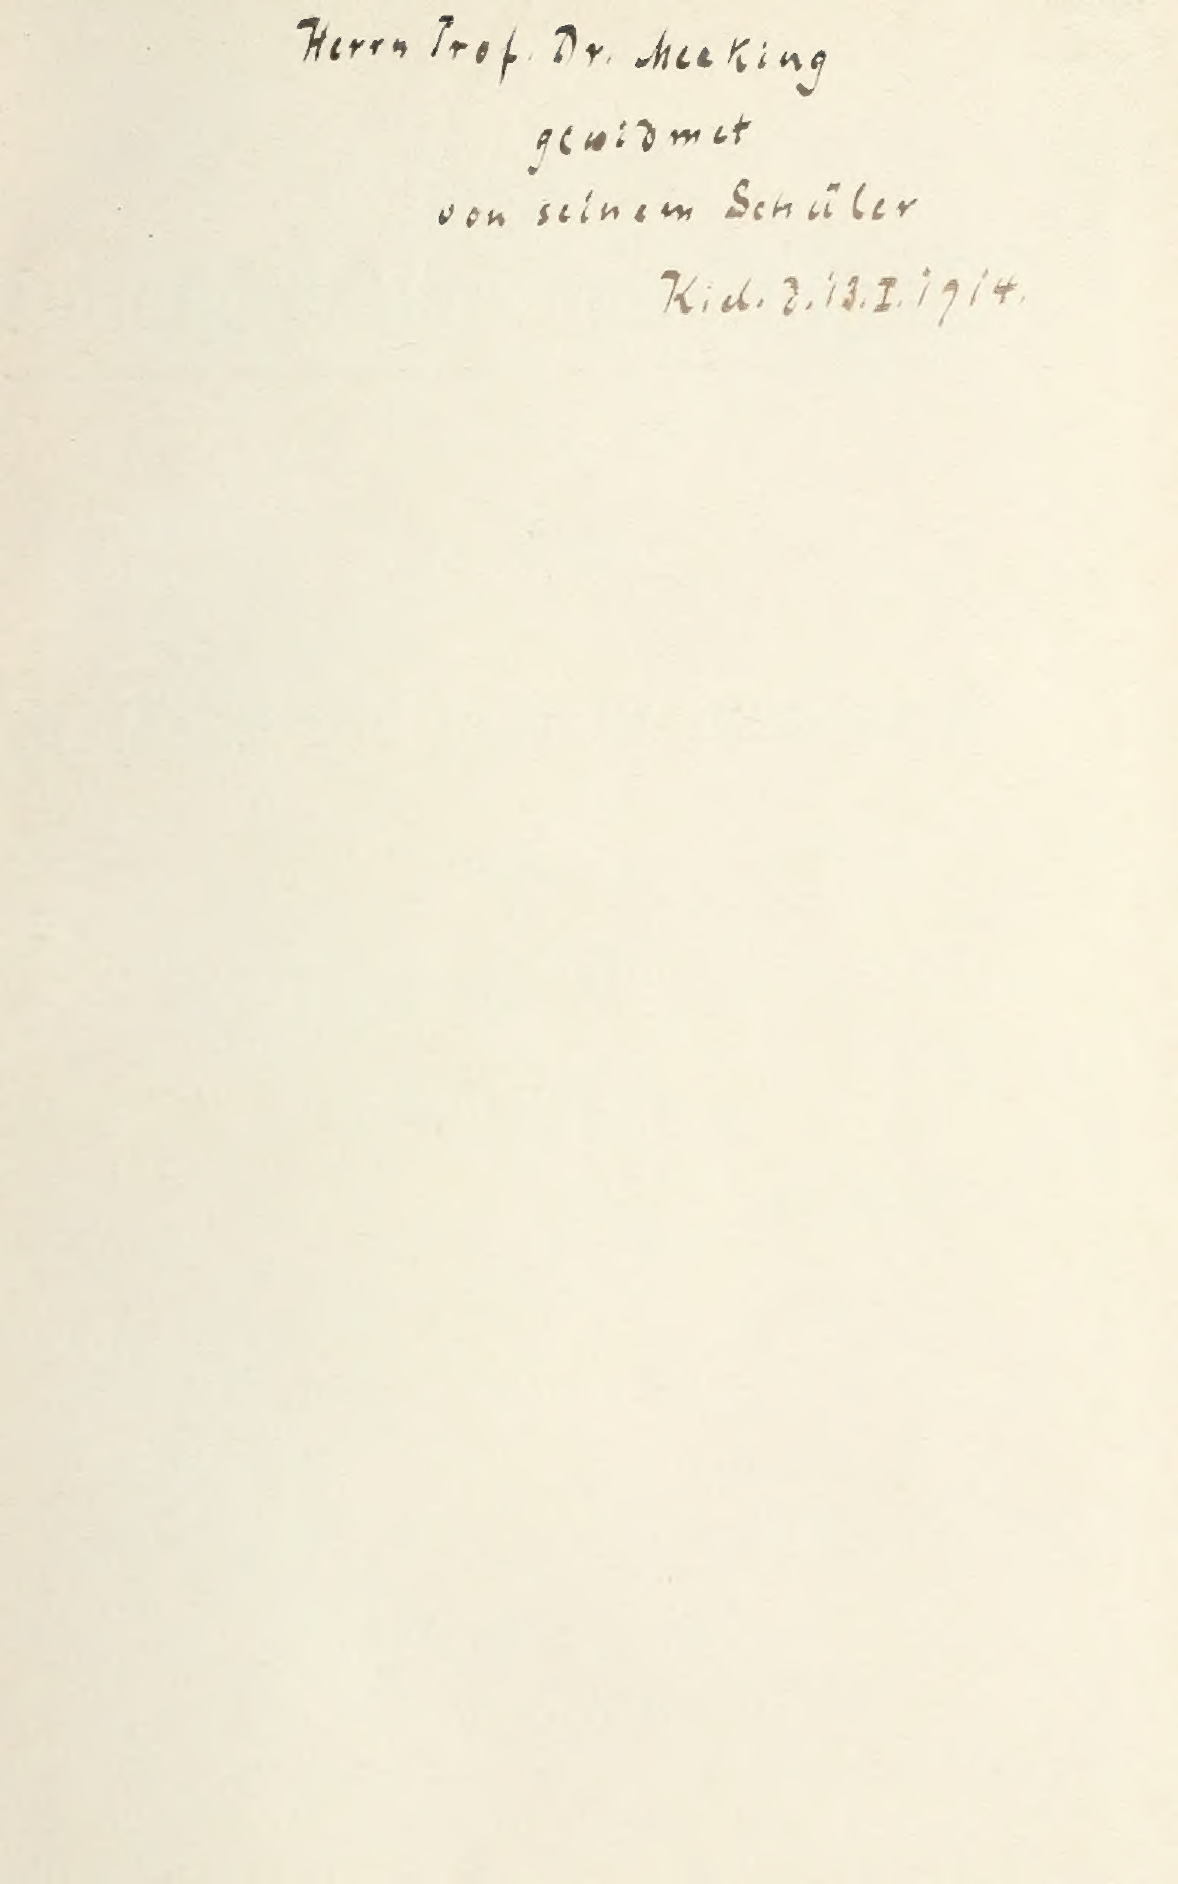 Herrn Prof. Dr. Mecking
gewidmet
von seinem Schüler
Kiel. d. 13. I. 1914.